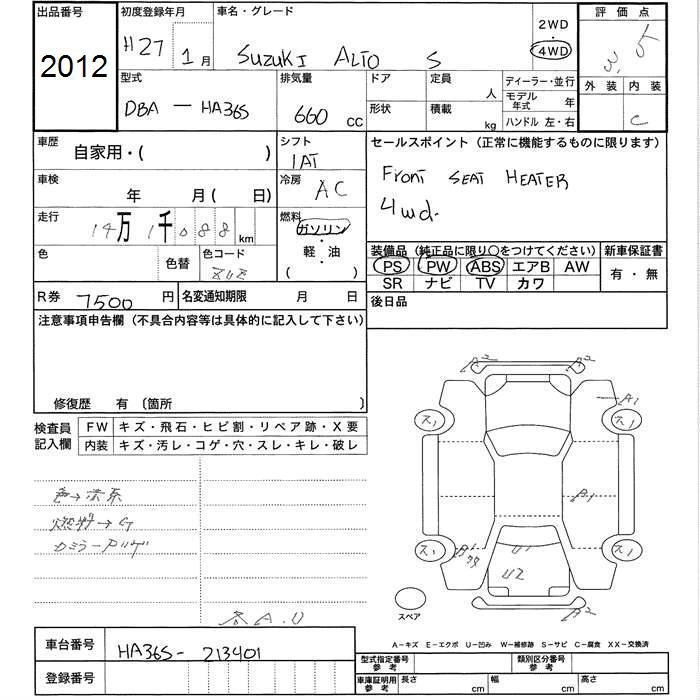 出品番号
2012
初度登録年月
H27 1月
車名・グレード
SUZUKI ALTO S
2WD
4WD
評価点
3.5
外装 内装
C
型式
DBA - HA36S
排気量
660 CC
ドア
形状
定員 人
積載 kg
ディーラー・並行
モデル年式 年
ハンドル 左・右
車歴
自家用・( )
シフト
IAT
車検
年 月( 日)
冷房
AC
走行
14万1千088km
燃料
ガソリン
・
軽・油
( )
色
色替
色コード
R券 7500円
名変通知期限 月 日
セールスポイント(正常に機能するものに限ります)
Front SEAT HEATER
4wd.
装備品(純正品に限り○をつけてください)
PS PW ABS エアB AW
SR ナビ TV カワ
新車保証書
有・無
後日品
注意事項申告欄(不具合内容等は具体的に記入して下さい)
修復歴 有 〔箇所 〕
検査員記入欄
FW キズ・飛石・ヒビ割・リペア跡・X要
内装 キズ・汚レ・コゲ・穴・スレ・キレ・破レ
色→赤系
燃料→G
A2 A2
A1
ス1 ス1
A1
ス1 ス1
U1
U2
A2
スペア
A.U
A−キズ E−エクボ U−凹み W−補修跡 S−サビ C−腐食 XX−交換済
車台番号
HA36S-213401
登録番号
型式指定番号参考
類別区分番号参考
車庫証明用参考
長さ cm
幅 cm
高さ cm